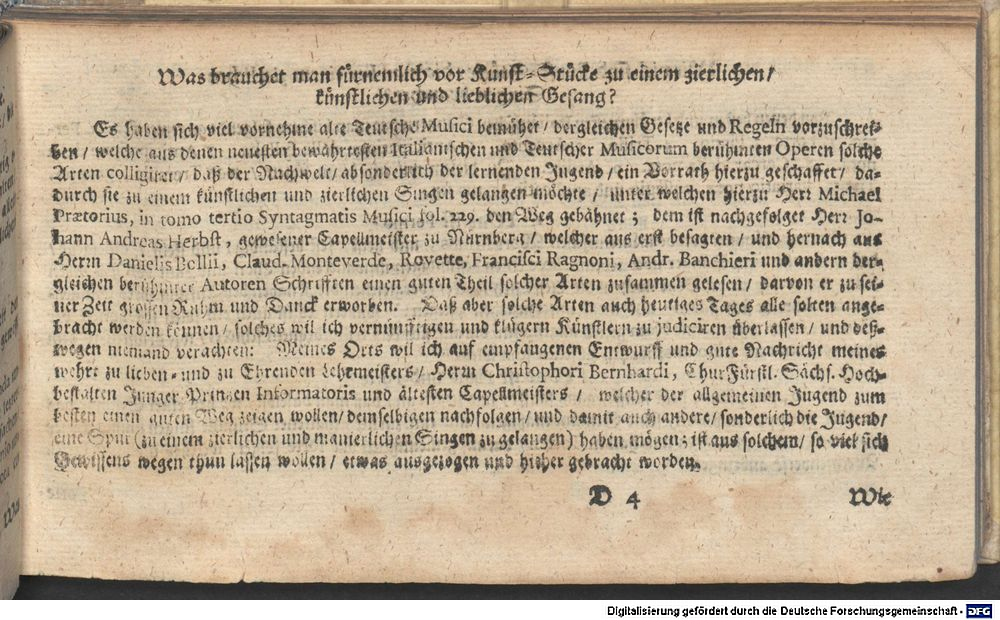 Was brauchet man fürnemlich vor Kunst-Stücke zu einem zierlichen/
künstlichen und lieblichen Gesang?
Es haben sich viel vornehme alte Teutsche Musici bemühet/ dergleichen Gesetze und Regeln vorzuschrei-
ben/ welche aus denen neuesten bewährtesten Italiänischen und Teutscher Musicorum berühmten Operen solche
Arten colligiret/ daß der Nachwelt/ absonderlich der lernenden Jugend/ ein Vorrath hierzu geschaffet/ da-
durch sie zu einem künstlichen und zierlichen Singen gelangen möchte/ unter welchen hierzu Herr Michael
Prætorius, in tomo tertio Syntagmatis Musici fol. 229. den Weg gebähnet; dem ist nachgefolget Herr Jo-
hann Andreas Herbst, gewesener Capellmeister zu Nürnberg/ welcher aus erst besagten/ und hernach aus
Herrn Danielis Bollii, Claud. Monteverde, Rovette, Francisci Ragnoni, Andr. Banchieri und andern der-
gleichen berühmter Autoren Schrifften einen guten Theil solcher Arten zusammen gelesen/ darvon er zu sei-
ner Zeit grossen Ruhm und Danck erworben. Daß aber solche Arten auch heutiges Tages alle solten ange-
bracht werden können/ solches wil ich vernünfftigen und klügern Künstlern zu judiciren überlassen/ und deß-
wegen niemand verachten: Meines Orts wil ich auf empfangenen Entwurff und gute Nachricht meines
wehrt zu lieben- und zu Ehrenden Lehrmeisters/ Herrn Christophori Bernhardi, ChurFürstl. Sächs. Hoch-
bestalten Junger Prinzen Informatoris und ältesten Capellmeisters/ welcher der allgemeinen Jugend zum
besten einen guten Weg zeigen wollen/ demselbigen nachfolgen/ und damit auch andere/ sonderlich die Jugend/
eine Spur (zu einem zierlichen und manierlichen Singen zu gelangen) haben mögen; ist aus solchem/ so viel sich
Gewissens wegen thun lassen wollen/ etwas ausgezogen und hieher gebracht worden.
D 4 Wie
Digitalisierung gefördert durch die Deutsche Forschungsgemeinschaft - DFG